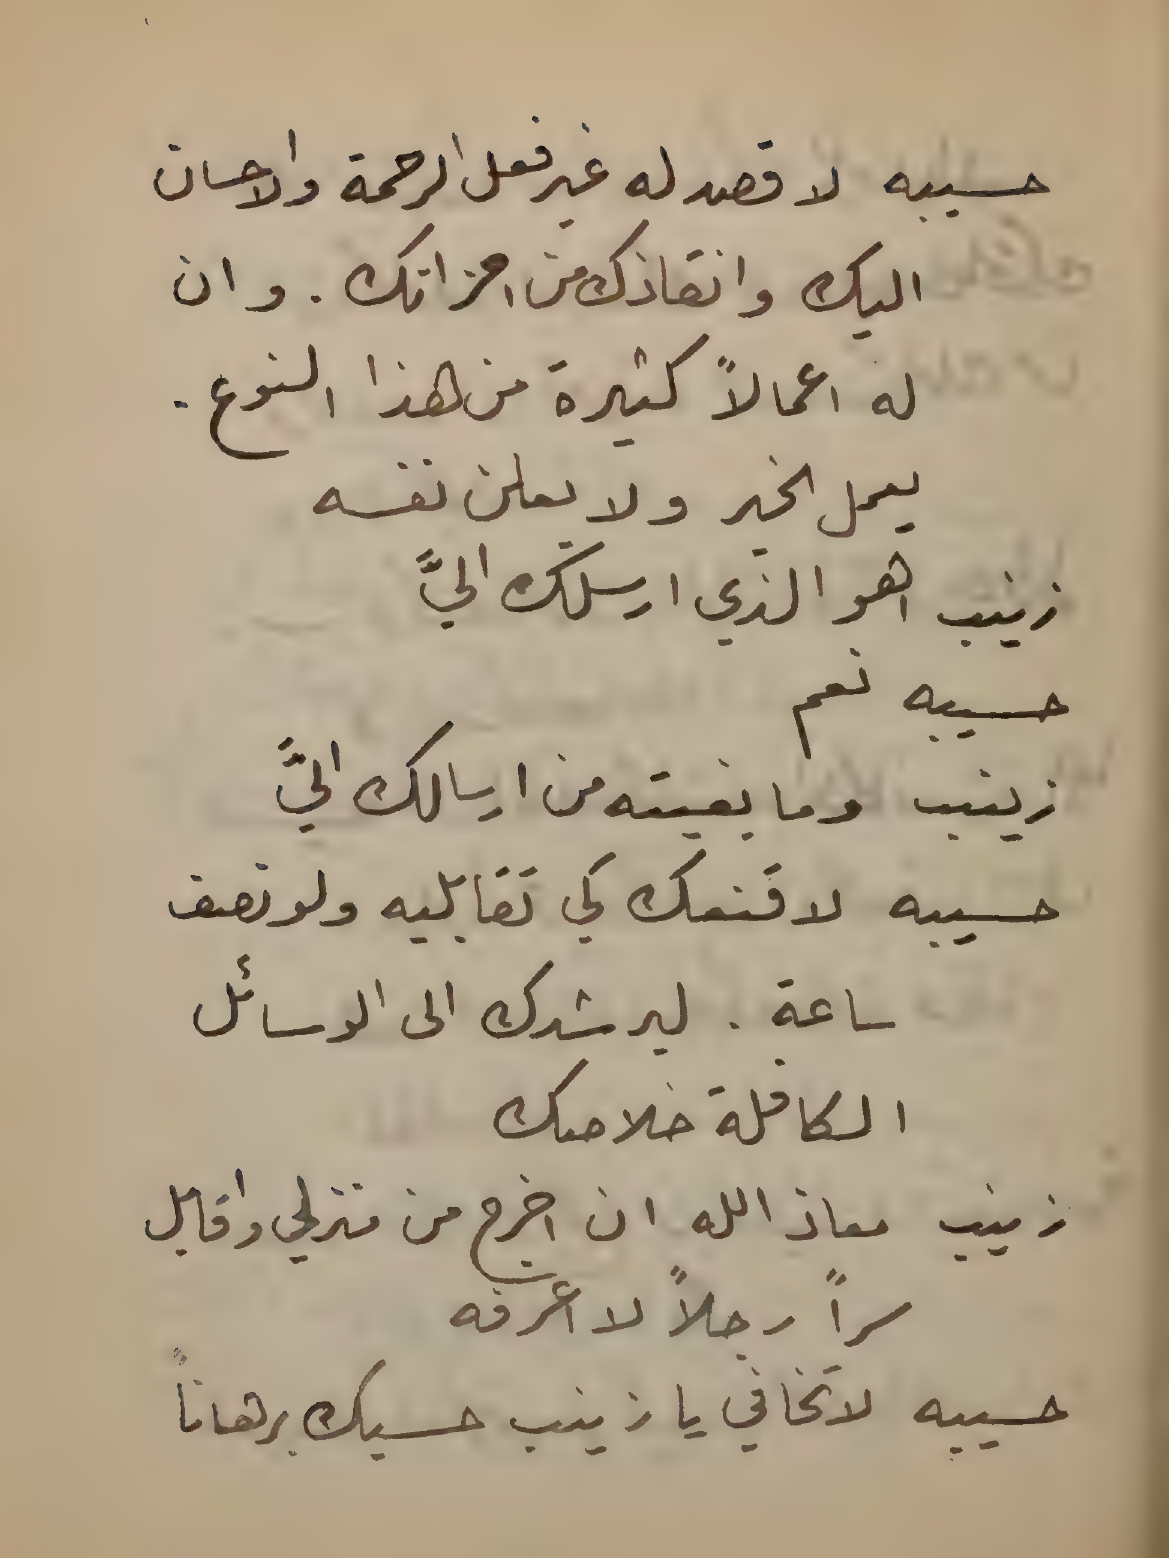 حسيبه لا قصد له غير فعل الرحمة والاحسان
اليك وانقاذك من احزانك . وان
له اعمالاً كثيرة من هذا النوع .
يعمل الخير ولا يعلن نفسه
زينب اهو الذي ارسلك اليَّ
حسيبه نعم
زينب وما بغيته من ارسالك اليَّ
حسيبه لاقنعك كي تقابليه ولو نصف
ساعة . ليرشدك الى الوسائل
الكافلة خلاصك
زينب معاذ الله ان اخرج من منزلي واقابل
سراً رجلاً لا اعرفه
حسيبه لا تخافي يا زينب حسبك برهاناً